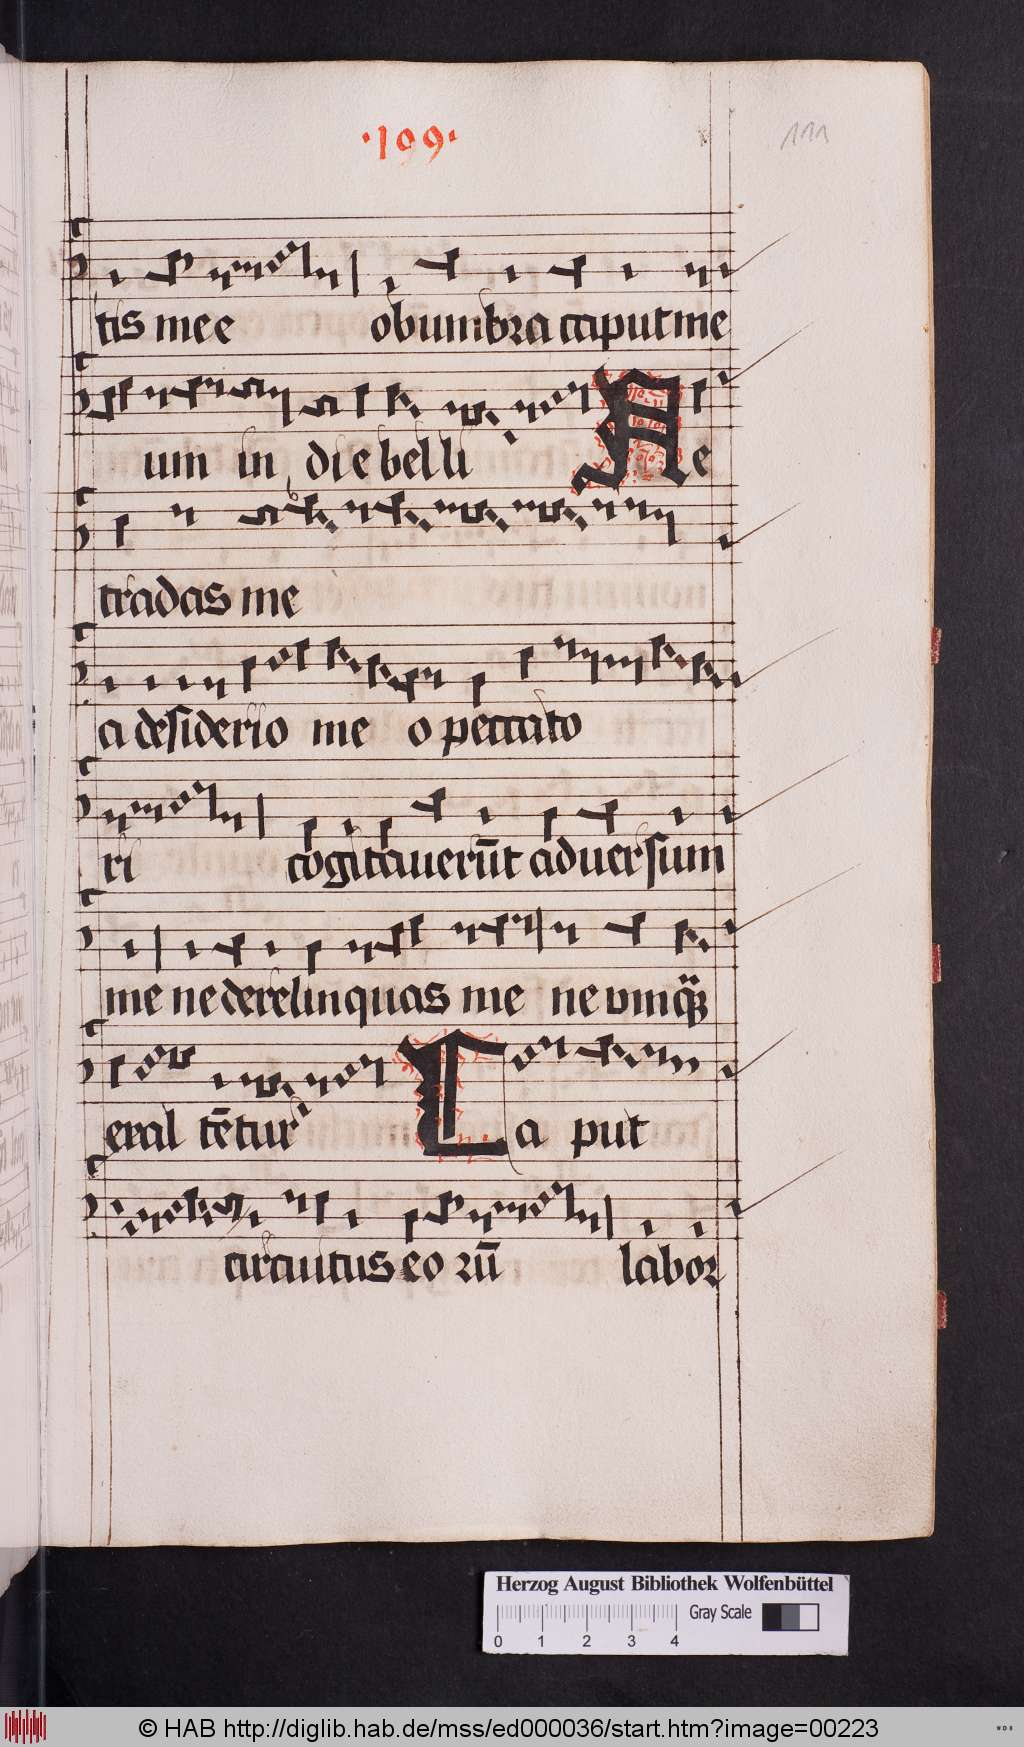 ·199·
111
tis mee obumbra caput me
um in die belli Ne
tradas me
a desiderio me o peccato
ri cogitauerūt aduersum
me ne derelinquas me ne vmqȝ
eral tētur Ca put
circuitus eo rū labor
Herzog August Bibliothek Wolfenbüttel
Gray Scale
0 1 2 3 4
© HAB http://diglib.hab.de/mss/ed000036/start.htm?image=00223